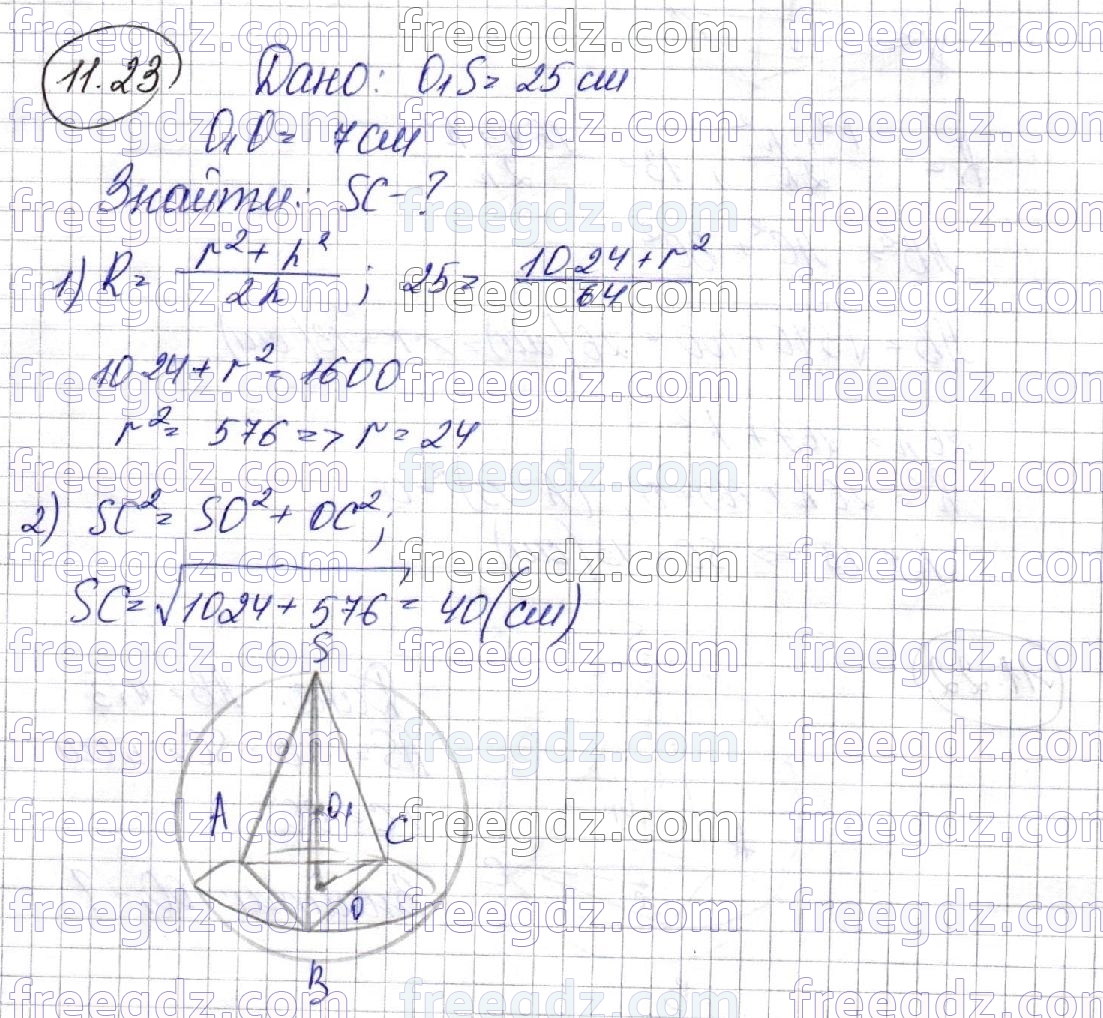 11.23 Дано: O₁S = 25 см
O₁O = 7 см
Знайти: SC - ?
1) R = (r² + h²)/(2h) ; 25 = (1024 + r²)/64
1024 + r² = 1600
r² = 576 => r = 24
2) SC² = SO² + OC²;
SC = √(1024 + 576) = 40 (см)
S
A O₁ C
O
B
freegdz.com